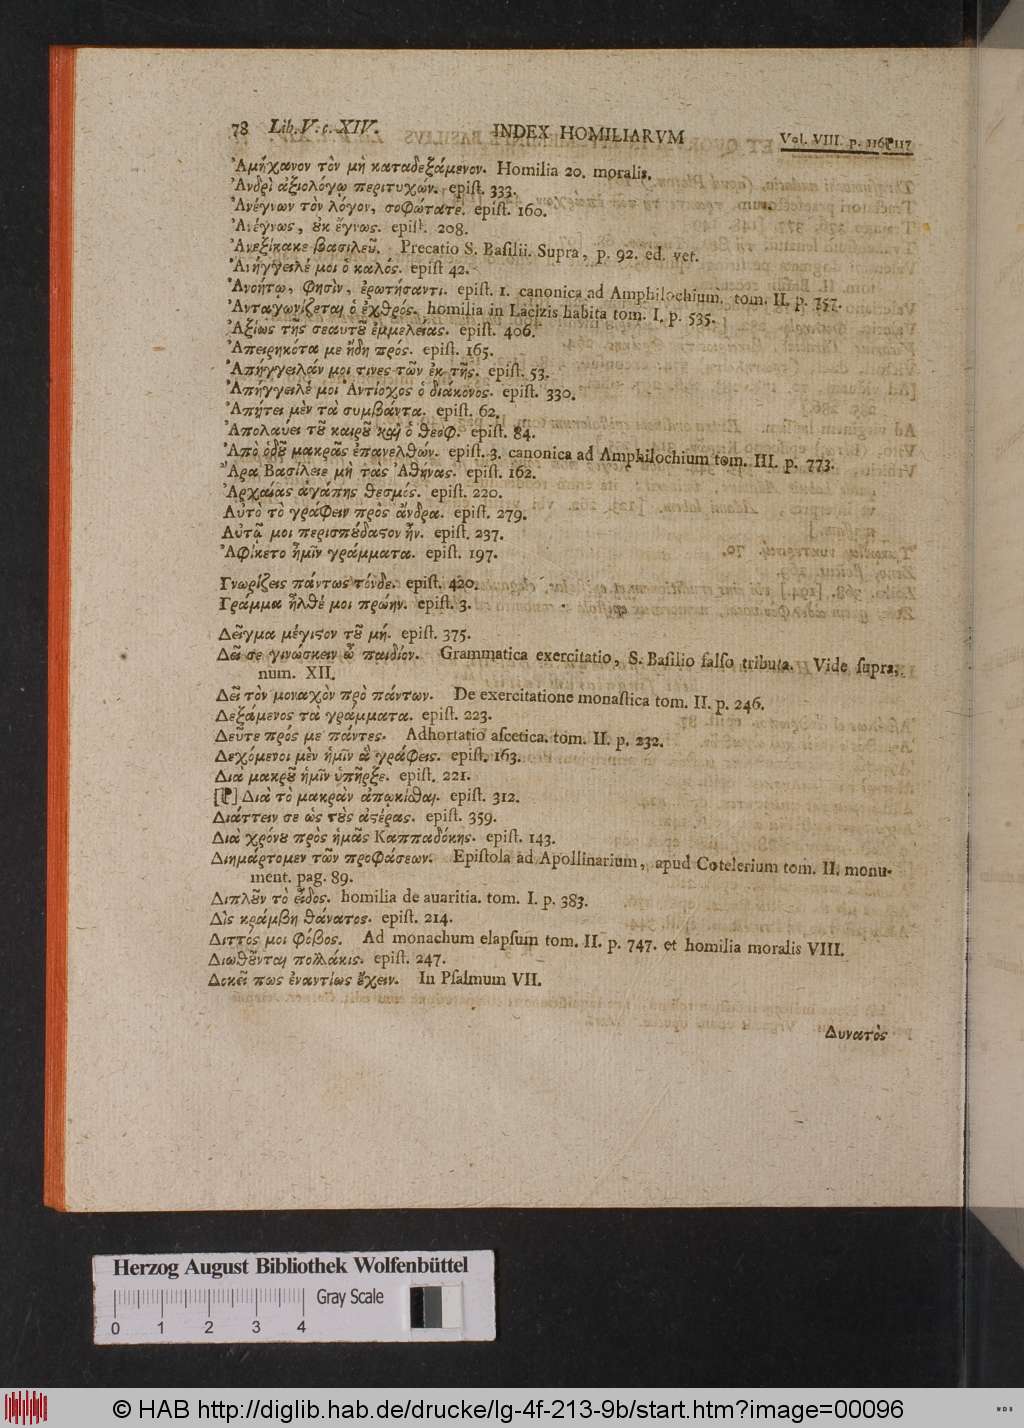 78 Lib. V. c. XIV. INDEX HOMILIARVM Vol. VIII. p. 116 117
Ἀμήχανον τὸν μὴ καταδεξάμενον. Homilia 20. moralis.
Ἀνδρὶ ἀξιολόγῳ περιτυχών. epiſt. 333.
Ἀνέγνων τὸν λόγον, σοφώτατέ. epiſt. 160.
Ἀνέγνως, ȣκ ἔγνως. epiſt. 208.
Ἀνεξίκακε βασιλεῦ. Precatio S. Baſilii. Supra, p. 92. ed. vet.
Ἀνήγγειλέ μοι ὁ καλός. epiſt 42.
Ἀνοήτῳ, φησὶν, ἐρωτήσαντι. epiſt. 1. canonica ad Amphilochium. tom. II. p. 757.
Ἀνταγωνίζεται ὁ ἐχθρός. homilia in Lacizis habita tom. I. p. 535.
Ἀξίως τῆς σεαυτοῦ ἐμμελείας. epiſt. 406.
Ἀπειρηκότα με ἤδη πρός. epiſt. 165.
Ἀπήγγειλάν μοι τινες τῶν ἐκ τῆς. epiſt. 53.
Ἀπήγγειλέ μοι Ἀντίοχος ὁ διάκονος. epiſt. 330.
Ἀπῄτει μὲν τὰ συμβάντα. epiſt. 62.
Ἀπολαύει τȣ͂ καιρȣ͂ καὶ ὁ θεοφ. epiſt. 84.
Ἀπὸ ὁδȣ͂ μακρᾶς ἐπανελθών. epiſt. 3. canonica ad Amphilochium tom. III. p. 773.
Ἆρα Βασίλειε μὴ τὰς Ἀθήνας. epiſt. 162.
Ἀρχαίας ἀγάπης θεσμός. epiſt. 220.
Αὐτὸ τὸ γράφειν πρὸς ἄνδρα. epiſt. 279.
Αὐτῷ μοι περισπȣ́δαστον ἦν. epiſt. 237.
Ἀφίκετο ἡμῖν γράμματα. epiſt. 197.
Γνωρίζεις πάντως τόνδε. epiſt. 420.
Γράμμα ἦλθέ μοι πρώην. epiſt. 3.
Δεῖγμα μέγιστον τȣ͂ μή. epiſt. 375.
Δεῖ σε γινώσκειν ὦ παιδίον. Grammatica exercitatio, S. Baſilio falſo tributa. Vide ſupra,
num. XII.
Δεῖ τὸν μοναχὸν πρὸ πάντων. De exercitatione monaſtica tom. II. p. 246.
Δεξάμενος τὰ γράμματα. epiſt. 223.
Δεῦτε πρός με πάντες. Adhortatio aſcetica. tom. II. p. 232.
Δεχόμενοι μὲν ἡμῖν ἃ γράφεις. epiſt. 163.
Διὰ μακρȣ͂ ἡμῖν ὑπῆρξε. epiſt. 221.
[] Διὰ τὸ μακρὰν ἀπῳκίσθαι. epiſt. 312.
Διάττειν σε ὡς τȣ̀ς ἀστέρας. epiſt. 359.
Διὰ χρόνȣ πρὸς ἡμᾶς Καππαδόκης. epiſt. 143.
Διημάρτομεν τῶν προφάσεων. Epiſtola ad Apollinarium, apud Cotelerium tom. II. monu-
ment. pag. 89.
Διπλȣ͂ν τὸ εἶδος. homilia de auaritia. tom. I. p. 383.
Δὶς κράμβη θάνατος. epiſt. 214.
Διττός μοι φόβος. Ad monachum elapſum tom. II. p. 747. et homilia moralis VIII.
Διωθȣ͂νται πολλάκις. epiſt. 247.
Δοκεῖ πως ἐναντίως ἔχειν. In Pſalmum VII.
Δυνατὸς
Herzog August Bibliothek Wolfenbüttel
Gray Scale
0 1 2 3 4
© HAB http://diglib.hab.de/drucke/lg-4f-213-9b/start.htm?image=00096